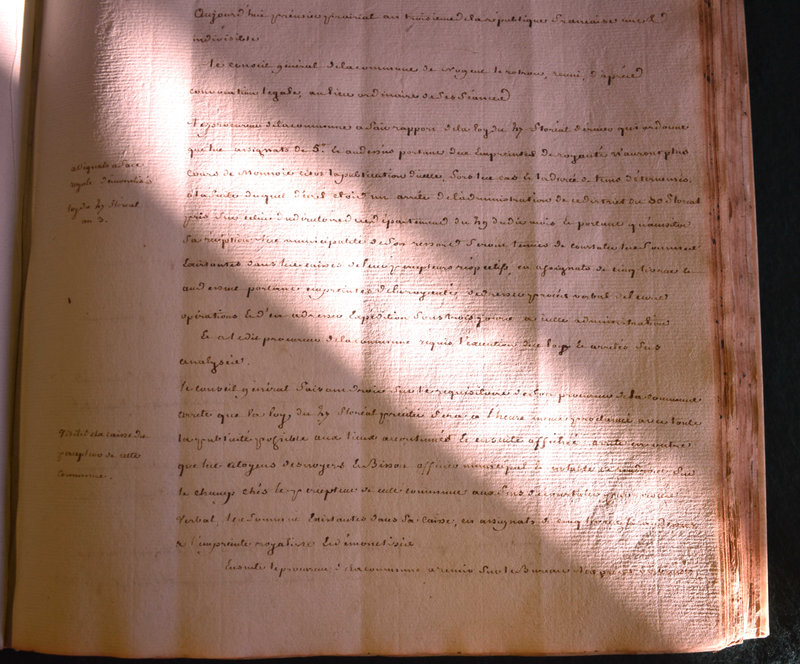 Aujourd'huy premier prairial an troisieme de la république française une &
indivisible
Le conseil général de la commune de Nogent le rotrou, reuni, d'après
convocation legale, au lieu ordinaire de ses séances
Le procureur de la commune a fait rapport de la loy du 27 floréal dernier qui ordonne
que les assignats de 5# et audessus portant des Empreintes de royauté n'auront plus
cours de Monnoie
a la suite duquel arrêté de l'administration de ce district du 30 floréal
pris sur celui du directoire du département du 29 dudit mois et portant qu'aussitôt
sa réception les municipalités de son ressort seront tenues de constater les sommes
Existantes dans les caisses de leur percepteurs respectifs, en assignats de cinq livres et
au dessus portant empreintes de la royauté, de dresser procès verbal de leurs
opérations et d'en adresser Expedition sous trois jours a cette administration
Et a ledit procureur de la commune requis l'execution des loy et arrêtés sus
analysés.
Le conseil général faisant droit sur le requisitoire de son procureur de la commune
arrete que la loy du 27 floréal sera a l'heure meme proclamée avec toute
la publicité possible aux lieux accoutumés et ensuite affichée, arrete en outre
que les citoyens desroyers Et officier municipal et notable se rendront sur
le champ chés le percepteur de cette commune aux fins de constater par procès
verbal, les sommes Existantes dans sa caisse, en assignats de cinq livres et au dessus
a l'empreinte royaliste Et démonetisés
Ensuite le procureur de la commune a remis sur le Bureau
assignats a face
royale démonétisés
loy du 27 floreal
an 3.
visite de la caisse du
percepteur de cette
commune.